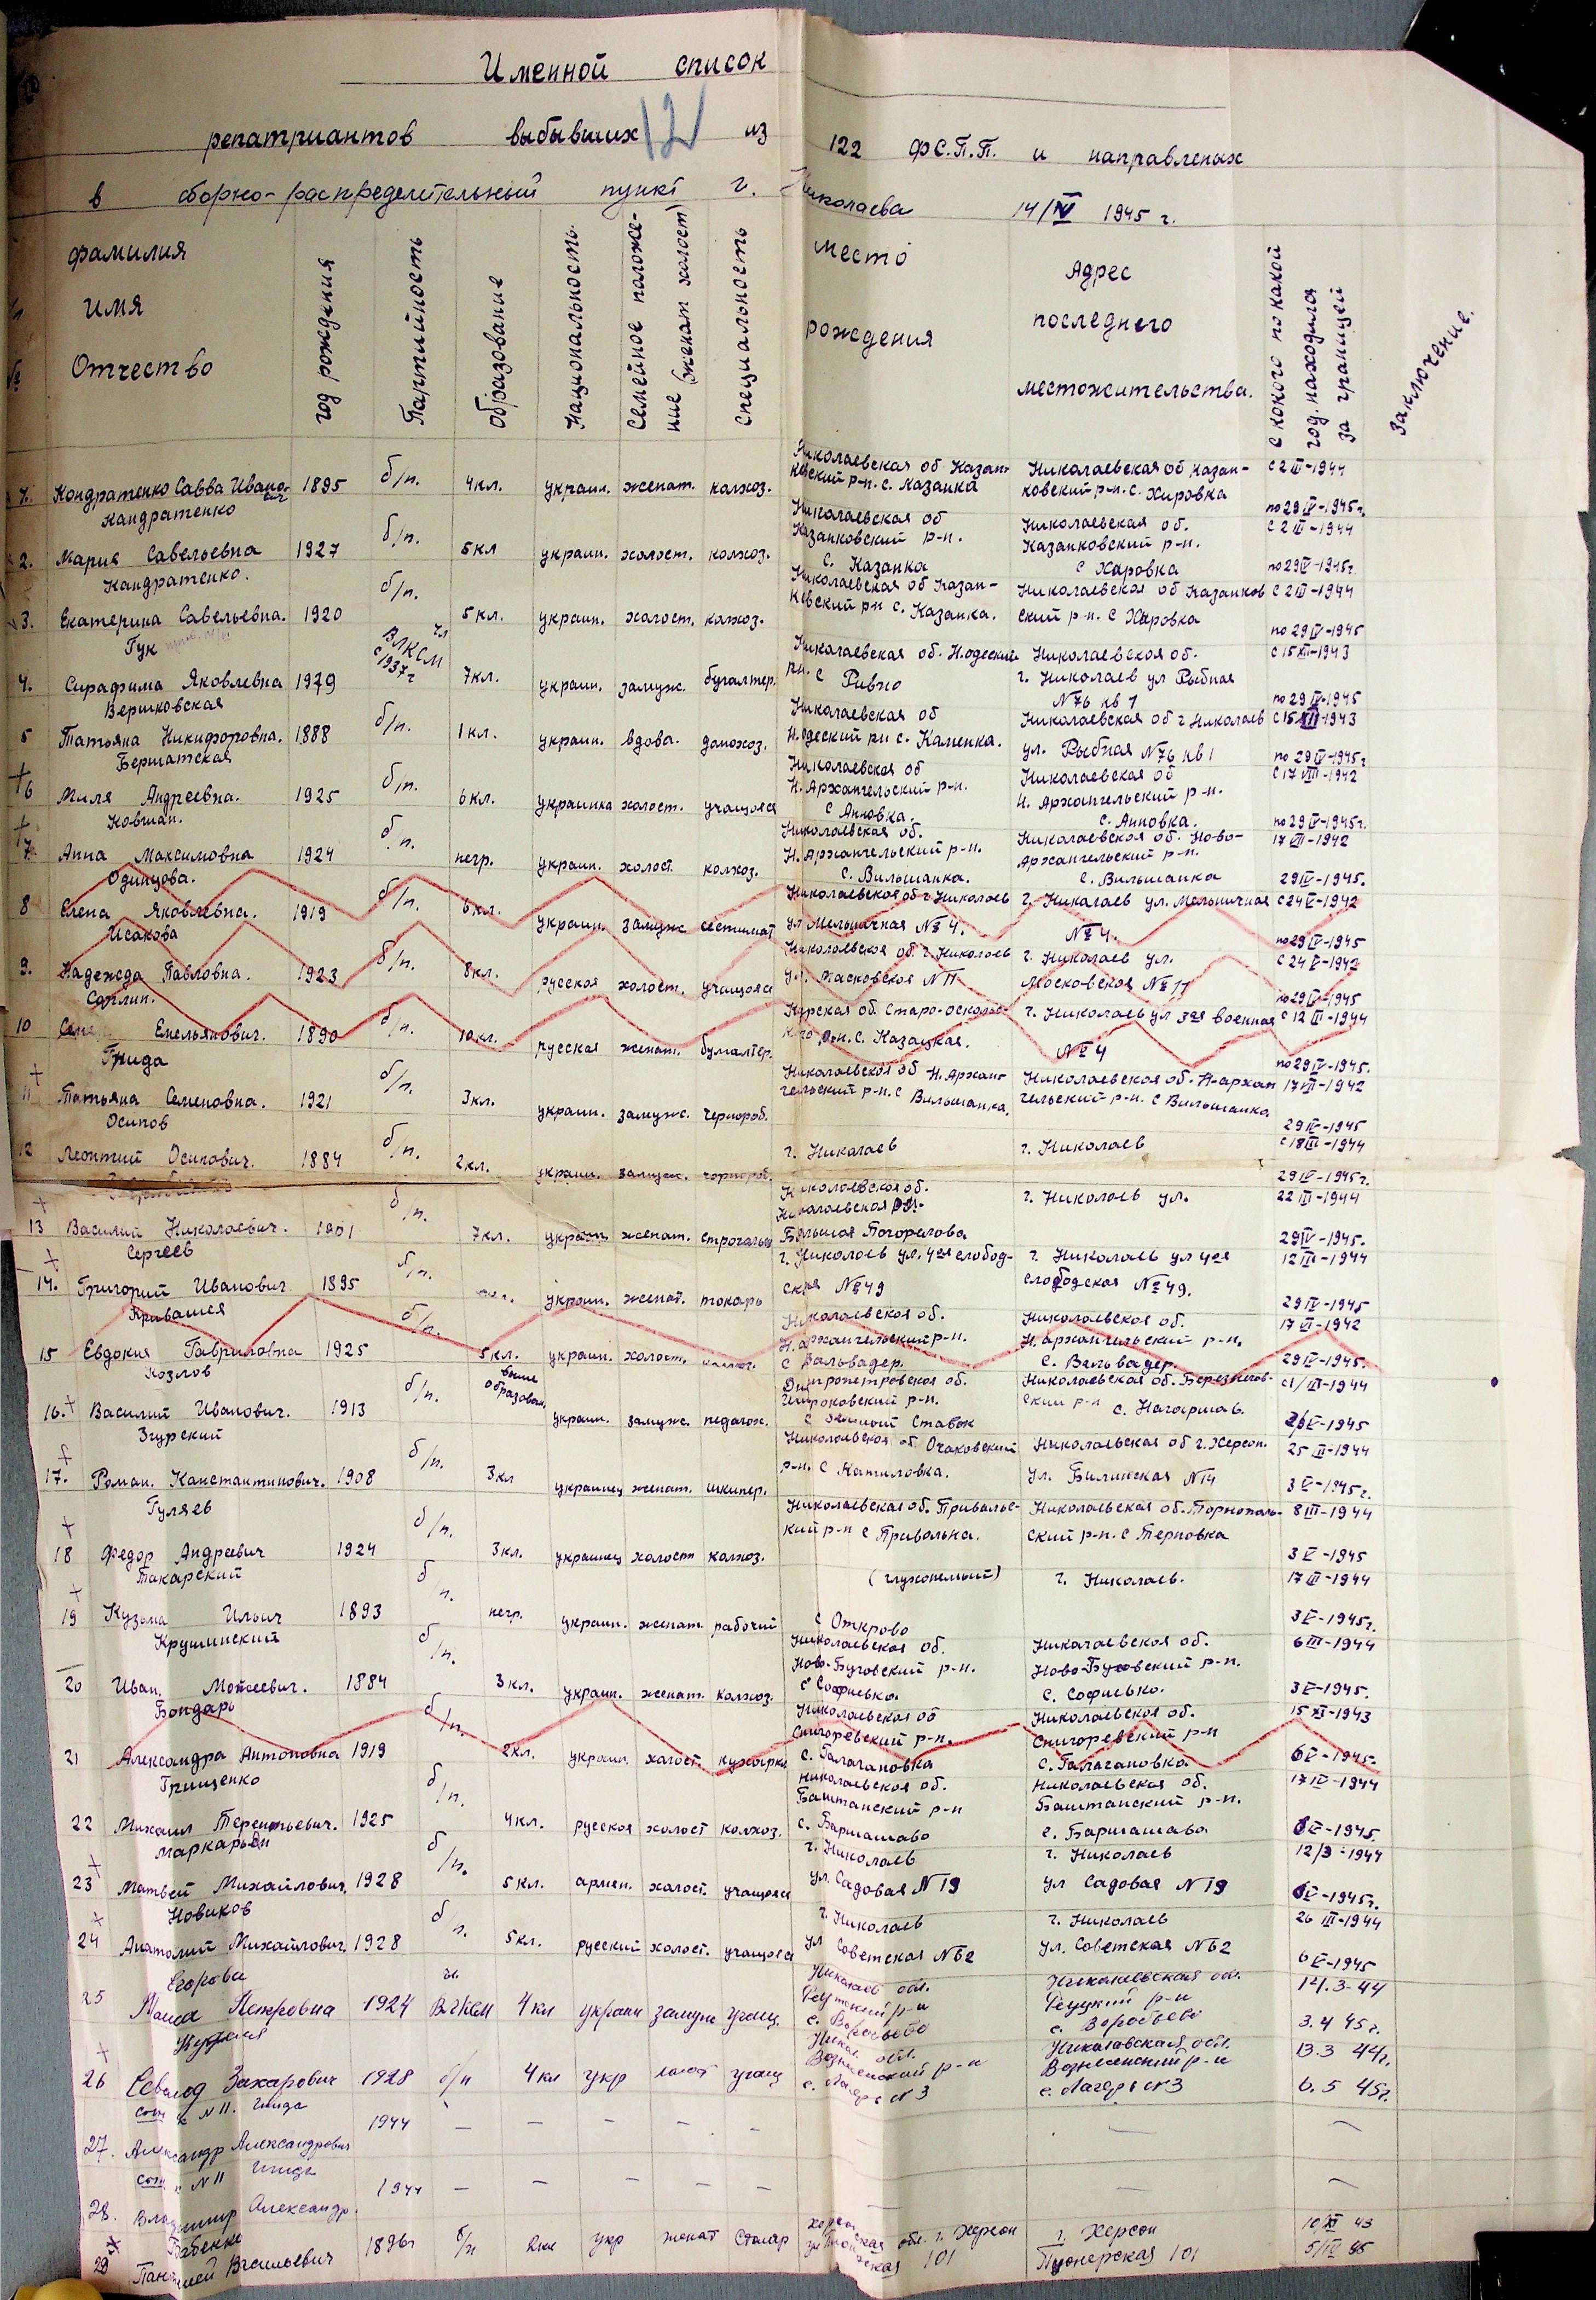 Именной список
репатриантов выбывших из 122 ФС.П.П. и направленых
12
в сборно-распределительный пункт г. Николаева 14/IV 1945 г.
№ фамилия имя Отчество
год рождения
Партийность
Образование
Национальность
Семейное положение (женат холост)
специальность
место рождения
Адрес последнего местожительства.
с кокого по какой год. находился за границей
Заключение.
1. Кондратенко Савва Иванович 1895 б/п. 4кл. украин. женат. колхоз. Николаевская об Казанковский р-н. с. Казанка Николаевская об Казанковский р-н. с. Хировка с 2 III-1944 по 29 IV-1945г.
2. Кандратенко Мария Савельевна 1927 б/п. 5кл украин. холост. колхоз. Николаевская об Казанковский р-н. с. Казанка Николаевская об. Казанковский р-н. с Харовка с 2 III-1944 по 29 IV-1945г.
3. Кандратенко. Екатерина Савельевна. 1920 б/п. 5кл. украин. холост. колхоз. Николаевская об Казанкевский рн с. Казанка. Николаевская об Казанковский р-н. с Харовка с 2 III-1944 по 29 IV-1945
4. Гук Серафима Яковлевна 1919 чл ВЛКСМ с 1937 г 7кл. украин. замуж. бугалтер. Николаевская об. Н.одеский рн. с Ривно Николаевская об. г. Николаев ул Рыбная N76 кв 1 с 15 XII-1943 по 29 IV-1945
5 Вершковская Татьяна Никифоровна. 1888 б/п. 1кл. украин. вдова. домохоз. Николаевская об Н.одеский рн с. Каменка. Николаевская об г Николаев ул. Рыбная N76 кв 1 с 15 XII-1943 по 29 IV-1945г
6 Бершатская Миля Андреевна. 1925 б/п. 6кл. украинка холост. учащояся Николаевская об Н. Архангельский р-н. с Анновка. Николаевская об Н. Архангельский р-н. с. Анновка. с 17 VIII-1942 по 29 IV-1945г.
7. Ковшан. Анна Максимовна 1924 б/п. негр. украин. холост. колхоз. Николаевская об. Н. Архангельский р-н. с. Вильшанка. Николаевская об. Ново-Архангельский р-н. с. Вильшанка 17 VII-1942 29 IV-1945.
8 Одинцова. Елена Яковлевна. 1919 б/п. 6кл. украин. замуж Николаевская об г Николаев ул Мельничная № 4. г. Николаев ул. Мельничная № 4. с 24 V-1942 по 29 IV-1945
9. Исакова Надежда Павловна. 1923 б/п. 8кл. русская холост. учащояся Николаевская об. г. Николаев ул. Масковская N11 г. Николаев ул. Московская № 11 с 24 V-1942 по 29 IV-1945
10 Емельянович. 1890 б/п. 10кл. русская женат. бугалтер. Курская об. Старо-Оскольского р-н. с. Казацкая. г. Николаев ул 3ая военная № 4 с 12 III-1944 по 29 IV-1945.
11 Грида Татьяна Семеновна. 1921 б/п. 3кл. украин. замуж. чернороб. Николаевская об Н. Архангельский р-н. с Вильшанка. Николаевская об. Н-архангельский р-н. с Вильшанка 17 VII-1942 29 IV-1945
12 Осипов Леонтий Осипович. 1884 б/п. 2кл. украин. замуж. чорнороб. г. Николаев г. Николаев с 18 III-1944 29 IV-1945г.
13 Василий Николаевич. 1901 б/п. 7кл. украин. женат. строгальщ Николаевская об. Большая Погорелова г. Николаев ул. 22 III-1944 29 IV-1945.
14. Сергеев Григорий Иванович 1895 б/п. украин. женат. токарь г. Николаев ул. 4ая слободская № 49 г. Николаев ул 4ая слободская № 49. 12 III-1944 29 IV-1945
15 Евдокия Гавриловна 1925 б/п. 5кл. украин. холост. Николаевская об. Н. архангельский р-н. с Вальвадер. Николаевская об. Н. архангельский р-н. с. Вельвадер. 17 VI-1942 29 IV-1945.
16. Козлов Василий Иванович. 1913 б/п. выше образован. украин. замуж. педагог. Днепропетровская об. Широковский р-н. с Зеленый Ставок Николаевская об. Березнеговский р-н с. Нагоршав. 3/V-1945
17. Згурский Роман. Канстантинович. 1908 б/п. 3кл украинец женат. шкипер. Николаевская об. Очаковский р-н. с Катиловка. Николаевская об г. Херсон. ул. Билинская N14 25 II-1944 3 V-1945г.
18 Гуляев Федор Андреевич 1924 б/п. 3кл. украинец холост колхоз. Николаевская об. Привольский р-н с Привольна. Николаевская об. Тарнопольский р-н. с Терновка 8 III-1944 3 V-1945
19 Такарский Кузьма Ильич 1893 б/п. негр. украин. женат. рабочий (глухонемый) с Откраво г. Николаев. 17 III-1944 3 V-1945г.
20 Крушинский Иван Моисеевич. 1884 б/п. 3кл. украин. женат. колхоз. Николаевская об. Ново-Бугский р-н. с Софиевка. Николаевская об. Ново-Буговский р-н. с. Софиевко. 6 III-1944 3 V-1945.
21 Бондарь Александра Антоновна 1919 б/п. 2кл. украин. холост. кухарка Николаевская об Снигоревский р-н. с. Галагановка Николаевская об. Снигоревский р-н с. Галагановка 15 XI-1943 6 V-1945.
22 Грищенко Михаил Терентьевич. 1925 б/п. 4кл. русской холост колхоз. Николаевская об. Баштанский р-н с. Бармашаво Николаевская об. Баштанский р-н. с. Бармашаво 17 IV-1944 6 V-1945
23 Маркарьян Матвей Михайлович. 1928 б/п. 5кл. армен. холост. учащояся г. Николаев ул. Садовая N 19 г. Николаев ул Садовая N 19 12/3-1944 6 V-1945г.
24 Новиков Анатолий Михайлович. 1928 б/п. 5кл. русский холост. учащояся г. Николаев ул Советская N62 г. Николаев ул. Советская N62 26 III-1944 6 V-1945
25 Егорова Маша Петровна 1924 чл. ВЛКСМ 4кл украин замуж учащ. Николаев обл. р-н с. Воробьево Николаевская обл. р-н с. Воробьево 14.3-44 3.4 45г.
26 Захарович 1928 б/п 4кл укр холост учащ Никол. обл. Вознесенский р-н с. Лагерь N3 Николаевская обл. Вознесенский р-н с. Лагерь N3 13.3 44г. 6.5 45г.
27. N 11. Александр Александрович 1944 — — — — — — — —
28. N 11 Владимир Александр. 1944 — — — — — — — —
29 Бабенко Пантилей Васильевич 1896г б/п 2кл укр женат Столяр Херсонская обл. г. Херсон ул Пионерская 101 г. Херсон Пионерская 101 10/XI 43 5/IV 45